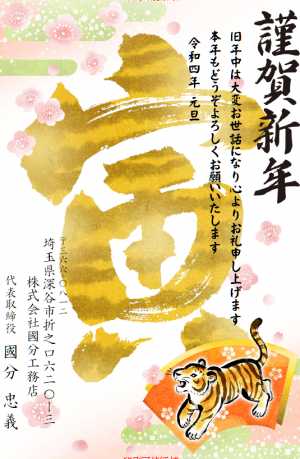 謹賀新年
旧年中は大変お世話になり心よりお礼申し上げます
本年もどうぞよろしくお願いいたします
令和四年 元旦
寅
〒三六六-〇八一二
埼玉県深谷市折之口六二〇-三
株式会社國分工務店
代表取締役 國分 忠義